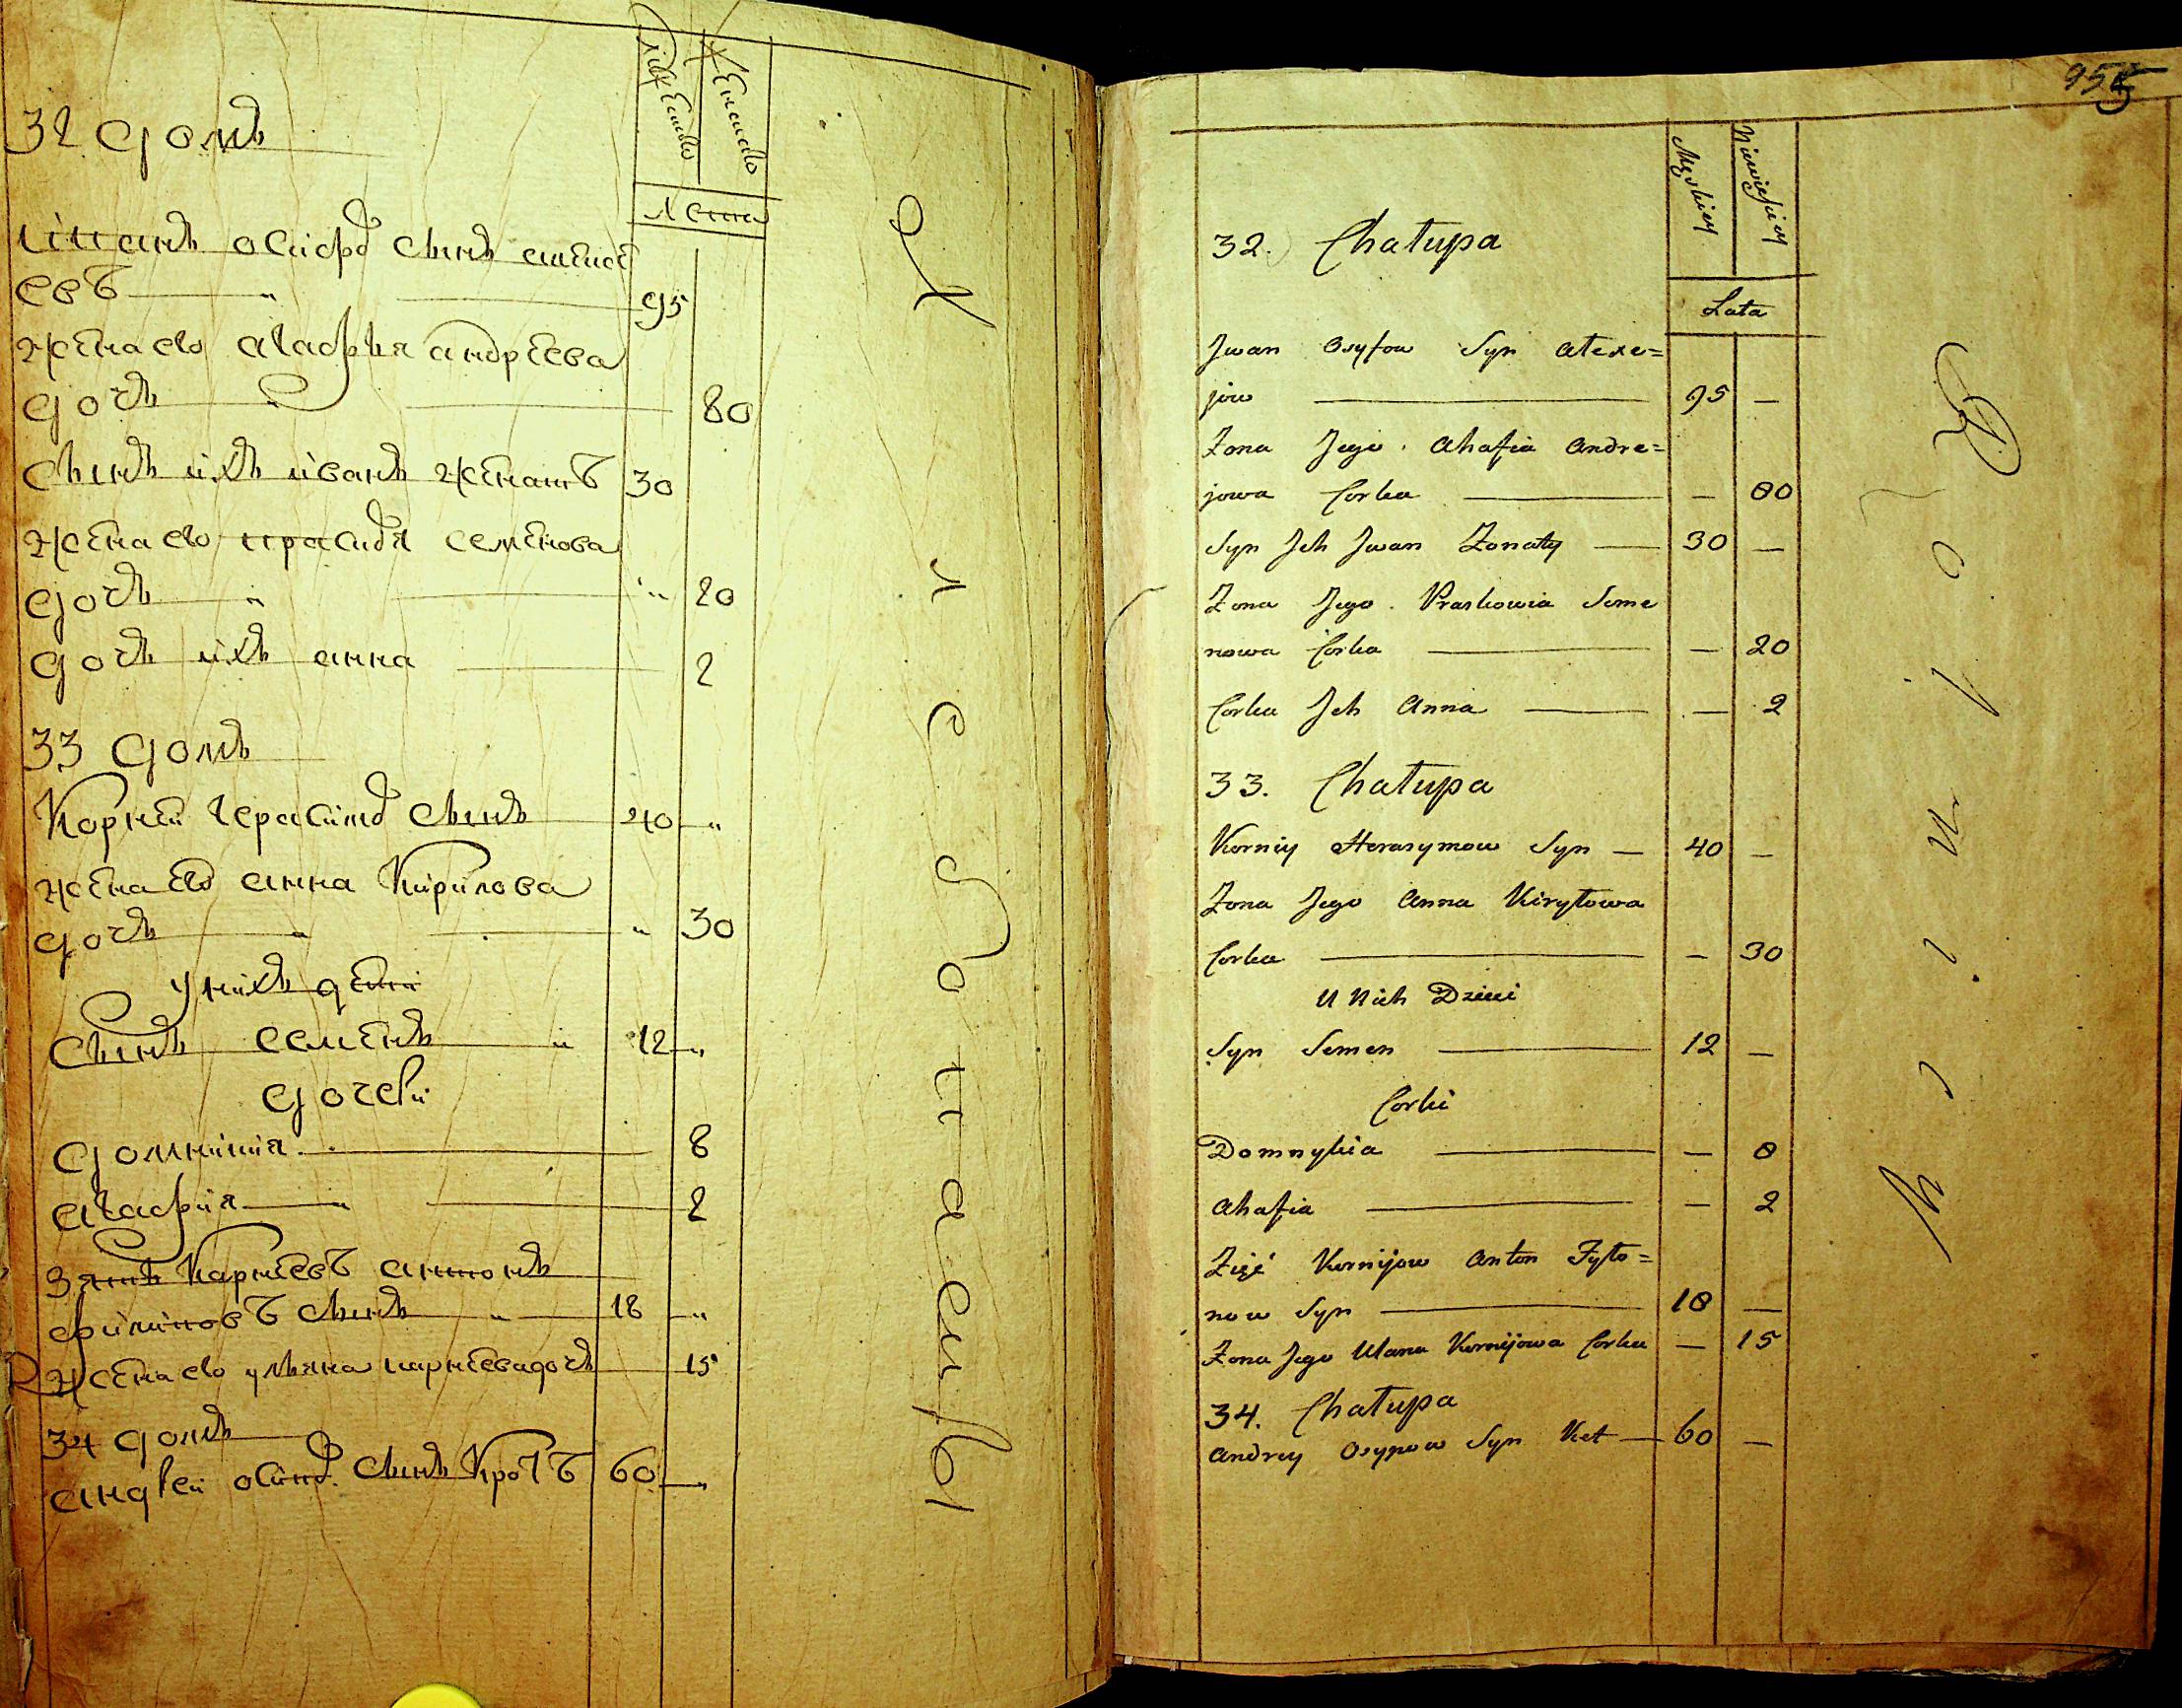 32 домъ
Мужеска
Женска
лета
осифо сынъ алексе
евъ 95
жена его агафья андреева
дочь 80
сынъ ихъ иванъ женатъ 30
жена его параскодя семенова
дочь " 20
дочь ихъ анна 2
33 домъ
Корней герасимо сынъ 40 "
жена его анна Кирилова
дочь " " 30
у нихъ дети
сынъ семенъ " 12 "
дочеки
домникия 8
агафия " 2
зять Карнеевъ антонъ
филиповъ сынъ " 18 "
жена его ульяна карнеева дочь 15
34 домъ
андрей осипо сынъ Кротъ 60 "
955
Męskiey
Niewieściey
32. Chałupa
Lata
Jwan Osyfow Syn Alexe=
jow 95 —
Zona Jego Ahafia Andre=
jowa Corka — 80
Syn Jch Jwan Zonaty — 30 —
Zona Jego Praskowia Seme
nowa Corka — 20
Corka Jch Anna — 2
33. Chałupa
Korniy Herasymow Syn — 40 —
Zona Jego Anna Kiryłowa
Corka — 30
U Nich Dzieci
Syn Semen 12 —
Corki
Domnykia — 8
Ahafia — 2
Zięć Kornijow Anton Fyło=
now Syn 18 —
Zona Jego Ulana Kornijowa Corka — 15
34. Chałupa
Andrey Osypow Syn Ket — 60 —